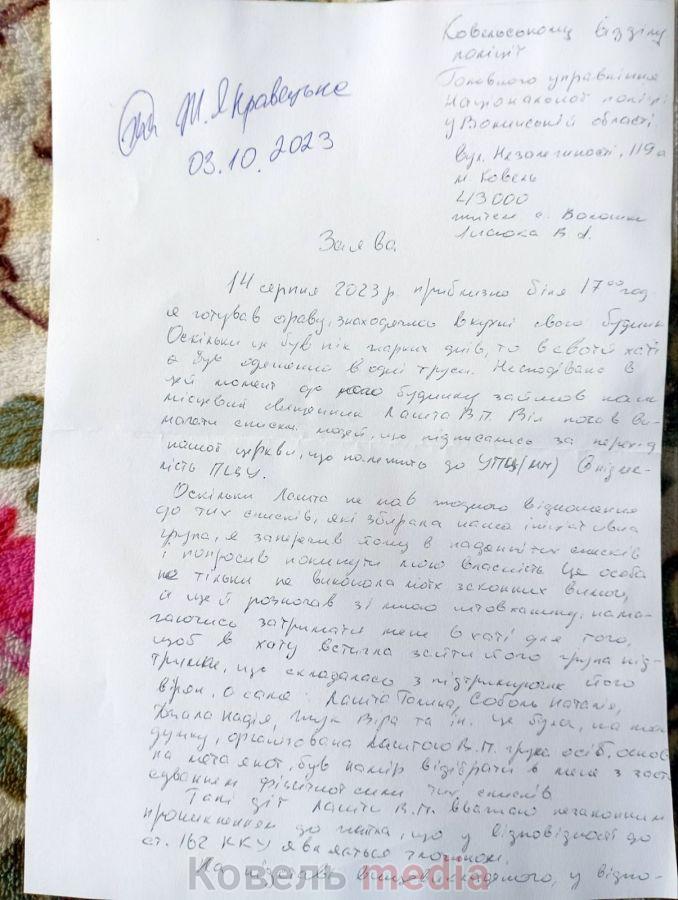 Ковельському відділу
поліції
Головного управління
Національної поліції
у Волинській області
вул. Незалежності, 119а
м. Ковель
43000
жителя с. Волошки
Лисюка В. А.
М. Я Кравецька
03.10.2023
Заява
14 серпня 2023 р. приблизно біля 17 00 год
я готував страву, знаходячись в кухні свого будинку
Оскільки це був пік жарких днів, то в своїй хаті
я був одягнений в одні труси. Несподівано в
цей момент до мого будинку зайшов наш
місцевий священник Лашта В.П. Він почав ви-
магати списки людей, що підписались за перехід
нашої церкви, що належить до УПЦ(мп) в підлег-
лість ПЦУ.
Оскільки Лашта не мав жодного відношення
до тих списків, які збирала наша ініціативна
група, я заперечив йому в наданні тих списків
і попросив покинути мою власність Ця особа
не тільки не виконала моїх законних вимог,
а ще й розпочав зі мною штовханину, нама-
гаючись затримати мене в хаті для того,
щоб в хату встигла зайти його група під-
тримки, що складалась з підтримуючих його
вірян, а саме: Лашта Галина, Соболь Наталія,
Надія, Жук Віра та ін. Це була, на мою
думку, організована Лаштою В.П. група осіб, основ
на мета якої був намір відібрати в мене з засто
суванням фізичної сили тих списків
Такі дії Лашти В.П. вважаю незаконним
проникненням до житла, що у відповідності до
ст. 162 ККУ являється злочином.
На підставі вищевикладеного, у відпо-
Ковель media